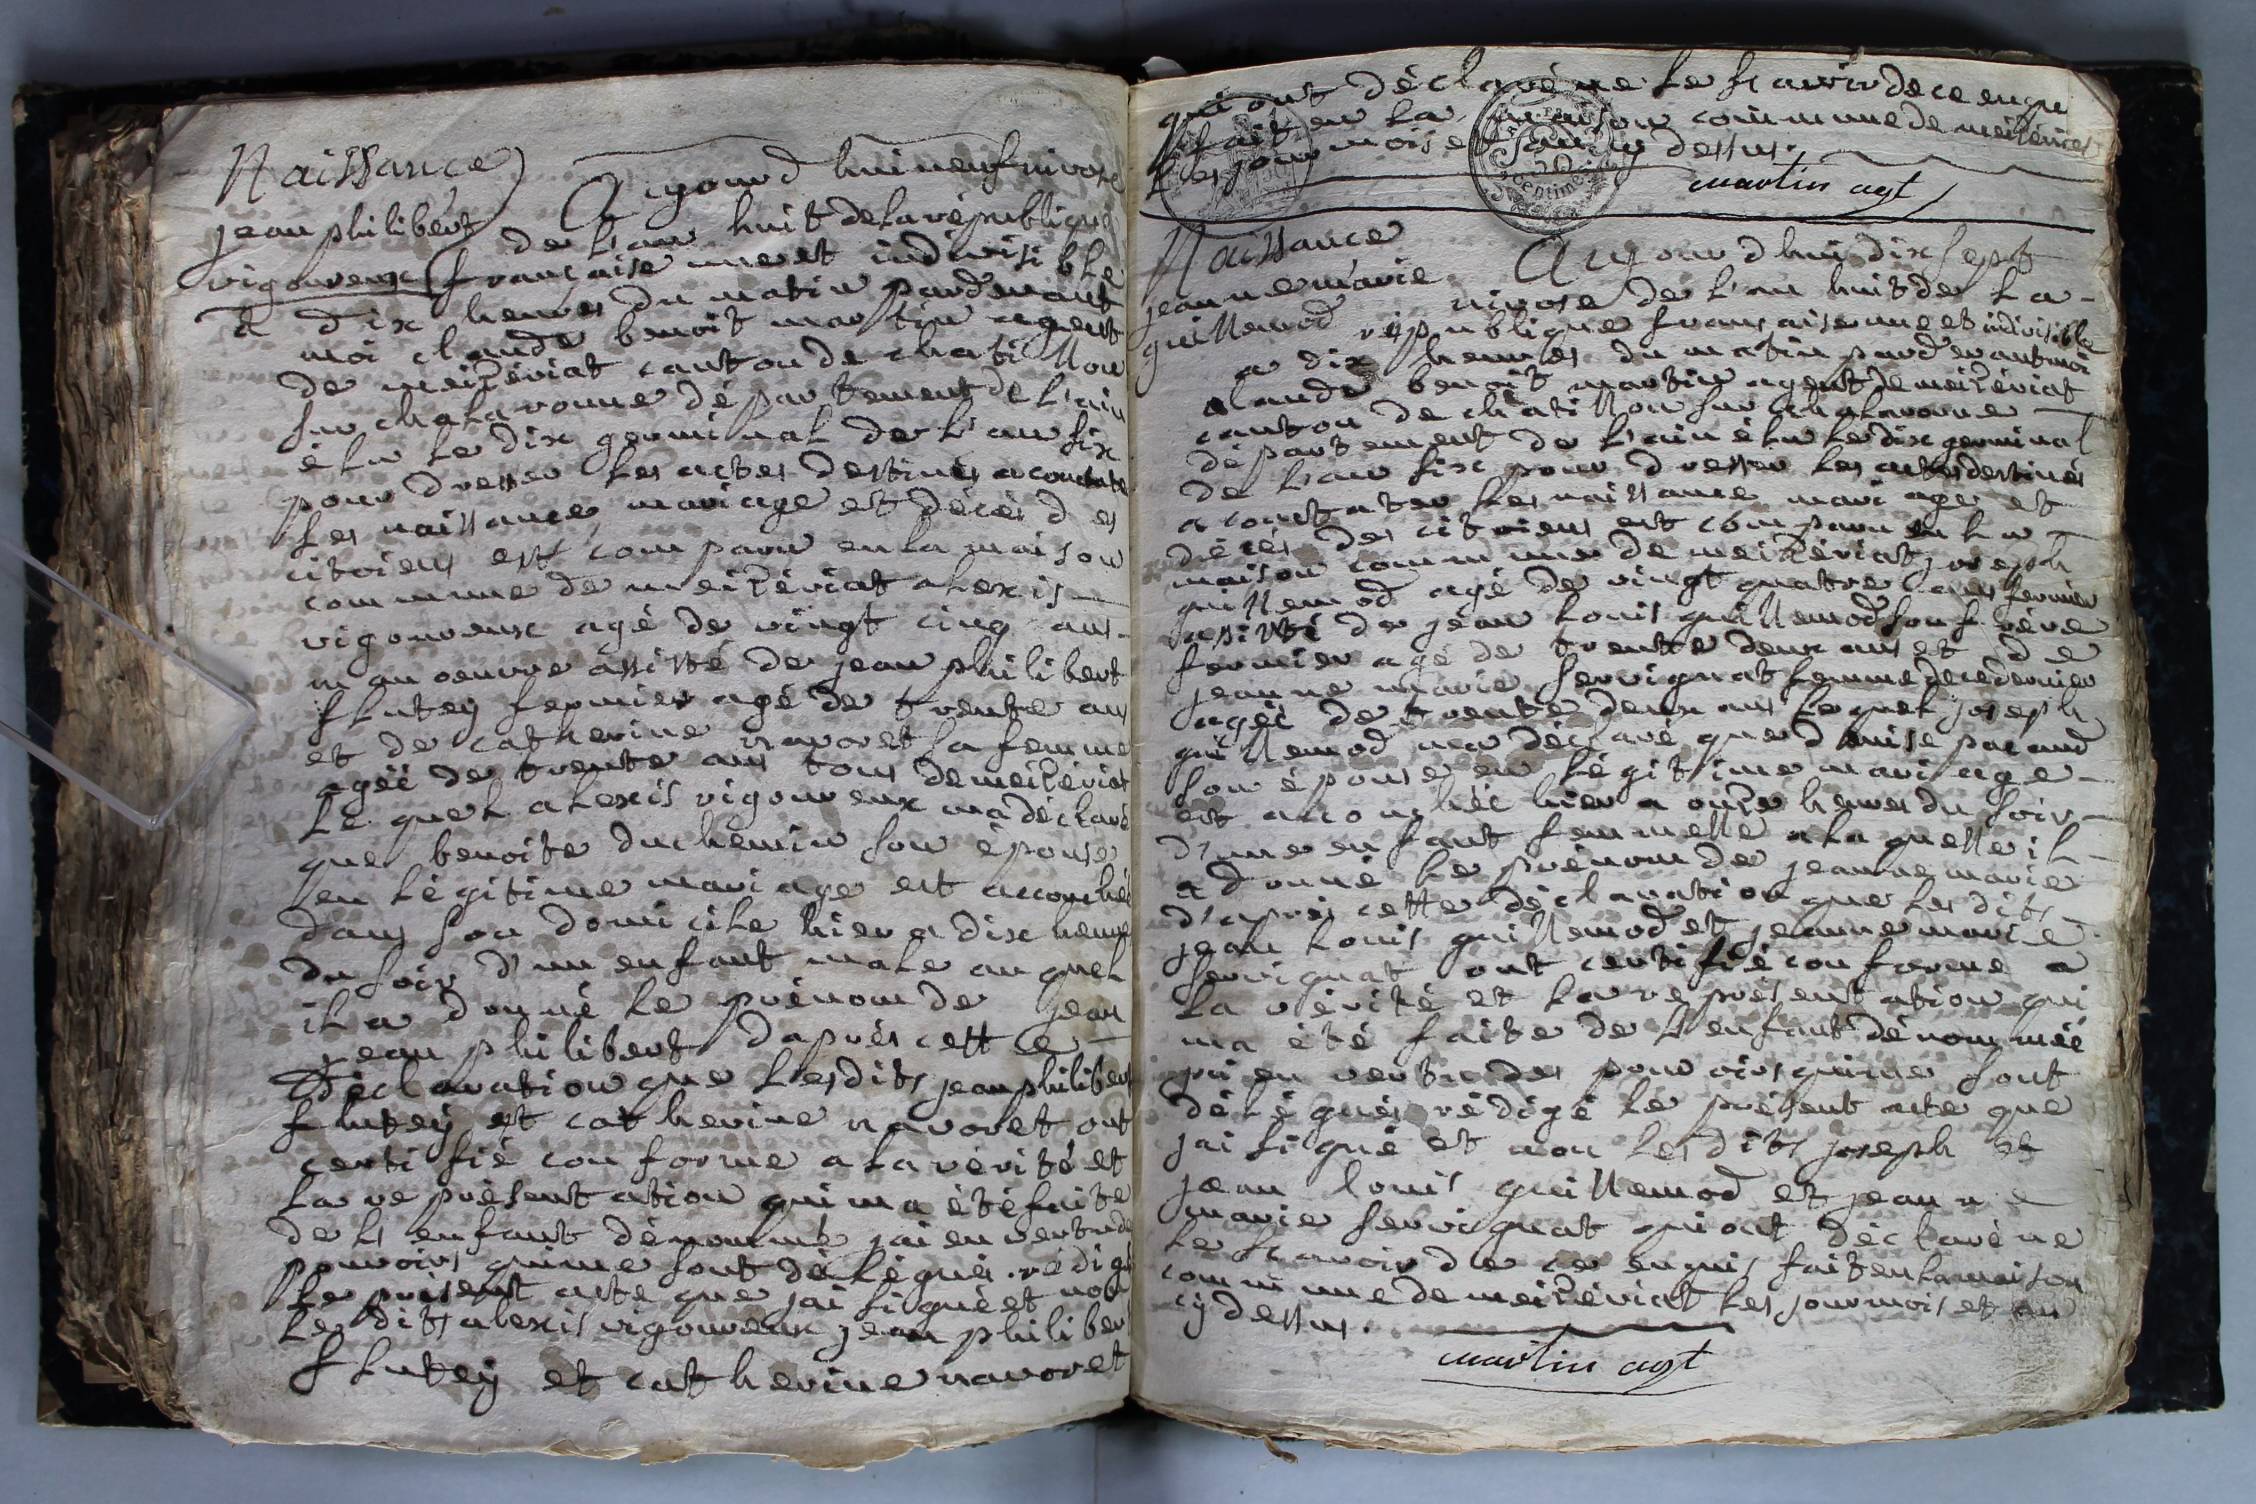 Naissance
jean philibert
vigoureux
Aujourd hui neuf nivose
de l'an huit de la république
française une et indivisible
a dix heures du matin pardevant
moi claude benoit martin agent
de meizériat canton de chatillon
sur chalaronne département de l'ain
élu le dix germinal de l'an six
pour dresser les actes destinés a constater
les naissance, mariage et décés des
citoiens est comparu en la maison
commune de meizériat alexis
vigoureux agé de vingt cinq ans
manoeuvre assisté de jean philibert
flutey fermier agé de trente ans
et de catherine navoret sa femme
agéé de trente ans tous de meizériat
le quel alexis vigoureux ma déclaré
que benoite duchemin son épouse
en légitime mariage est accouchéé
dans son domicile hier a dix heure
du soir d'un enfant male au quel
il a donné le prénom de jean
jean philibert d'aprés cette
Déclaration que lesdits jean philibert
flutey et catherine navoret ont
certifié conforme a la vérité et
la représentation qui m'a été faite
de l'enfant dénommé jai en vertu de
pouvoirs qui me sont délégués rédigé
le présent acte que jai signé et non
les dits alexis vigoureux jean philibert
flutey et catherine navoret
qui ont déclaré ne le scavoir de ce enqu
fait en la maison commune de meizériat
les jour mois et an cy dessus.
martin agt
50
centime
Naissance
jeanne marie
guillemod
Aujourd hui dix sept
nivose de l'an huit de la
république française une et indivisible
a dix heures du matin pardevant moi
claude benoit martin agent de meizériat
canton de chatillon sur chalaronne
département de l'ain élu le dix germinal
de l'an six pour dresser les actes destinés
a constater les naissance mariage et
décés des citoiens est comparu en la
maison commune de meizériat joseph
guillemod agé de vingt quatre ans fermier
assisté de jean louis guillemod son frere
fermier agé de trente deux ans et de
jeanne marie servignat femme de ce dernier
agéé de trente deux ans le quel joseph
guillemod ma déclaré que d
son épouse en légitime mariage
est accouchéé hier a onze heures du soir
d'une enfant femmelle a la quelle il
a donné le prénom de jeanne marie
d'aprés cette déclaration que les dits
jean louis guillemod et jeanne marie
servignat ont certifié conforme a
la vérité et la représentation qui
ma été faite de l'enfant dénomméé
jai en vertu des pouvoirs qui me sont
délégués rédigé le présent acte que
jai signé et non les dits joseph et
jean louis guillemod et jeanne
marie servignat qui ont déclaré ne
le scavoir de ce enquis fait en la maison
commune de meizériat les jour mois et an
cy dessus.
martin agt